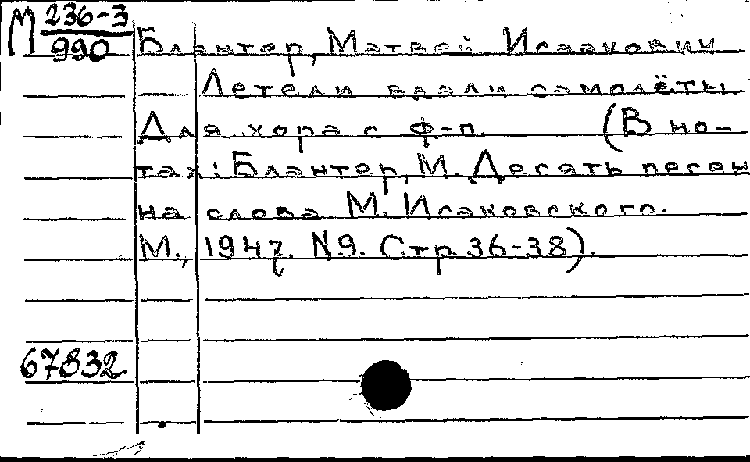 М 236-3
990
Блантер, Матвей Исаакович
Летели вдали самолёты
Для хора с ф-п. (В но-
тах: Блантер, М. Десять песен
на слова М. Исаковского.
М., 1947. N9. Стр. 36-38).
67832